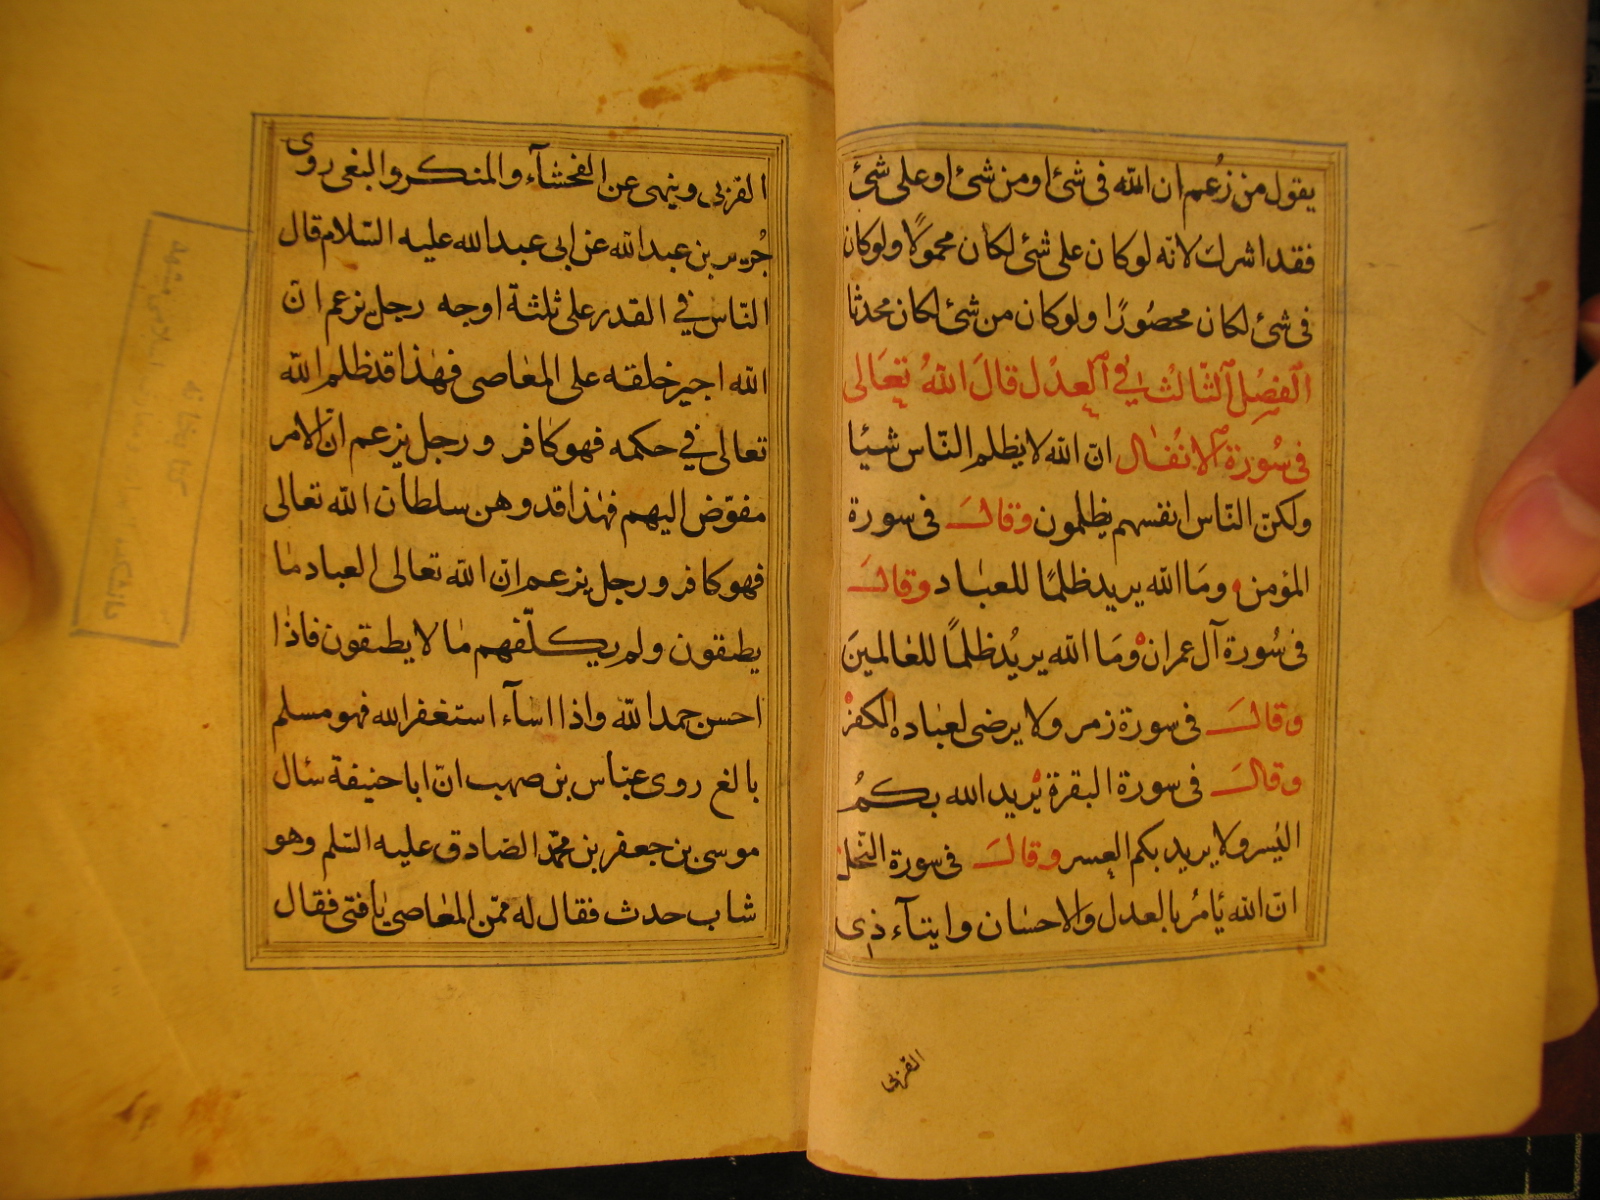 يقول من زعم ان الله فى شئ او من شئ او على شئ
فقد اشرك لانه لو كان على شئ لكان محمولًا ولو كان
فى شئ لكان محصورًا ولو كان من شئ لكان محدثا
الفصل الثالث فى العدل قال الله تعالى
فى سورة الانفال انّ الله لا يظلم النّاس شيئا
ولكنّ النّاس انفسهم يظلمون وقال فى سورة
المؤمن وما الله يريد ظلمًا للعباد وقال
فى سورة آل عمران وما الله يريد ظلمًا للعالمين
وقال فى سورة زمر ولا يرضى لعباده الكفر
وقال فى سورة البقرة يريد الله بكم
اليسر ولا يريد بكم العسر وقال فى سورة النّحل
انّ الله يأمر بالعدل والاحسان وايتآء ذى
القربى
القربى وينهى عن الفحشآء والمنكر والبغى روى
جرير بن عبد الله عن ابى عبد الله عليه السّلام قال
النّاس فى القدر على ثلثة اوجه رجل يزعم انّ
الله اجبر خلقه على المعاصى فهذا قد ظلم الله
تعالى فى حكمه فهو كافر ورجل يزعم انّ الامر
مفوّض اليهم فهذا قد وهن سلطان الله تعالى
فهو كافر ورجل يزعم انّ الله تعالى العباد ما
يطيقون ولم يكلّفهم ما لا يطيقون فاذا
احسن حمد الله واذا اسآء استغفر الله فهو مسلم
بالغ روى عبّاس بن صهيب انّ ابا حنيفة سئال
موسى بن جعفر بن محمّد الصّادق عليه السّلم وهو
شاب حدث فقال له ممّن المعاصى يا فتى فقال